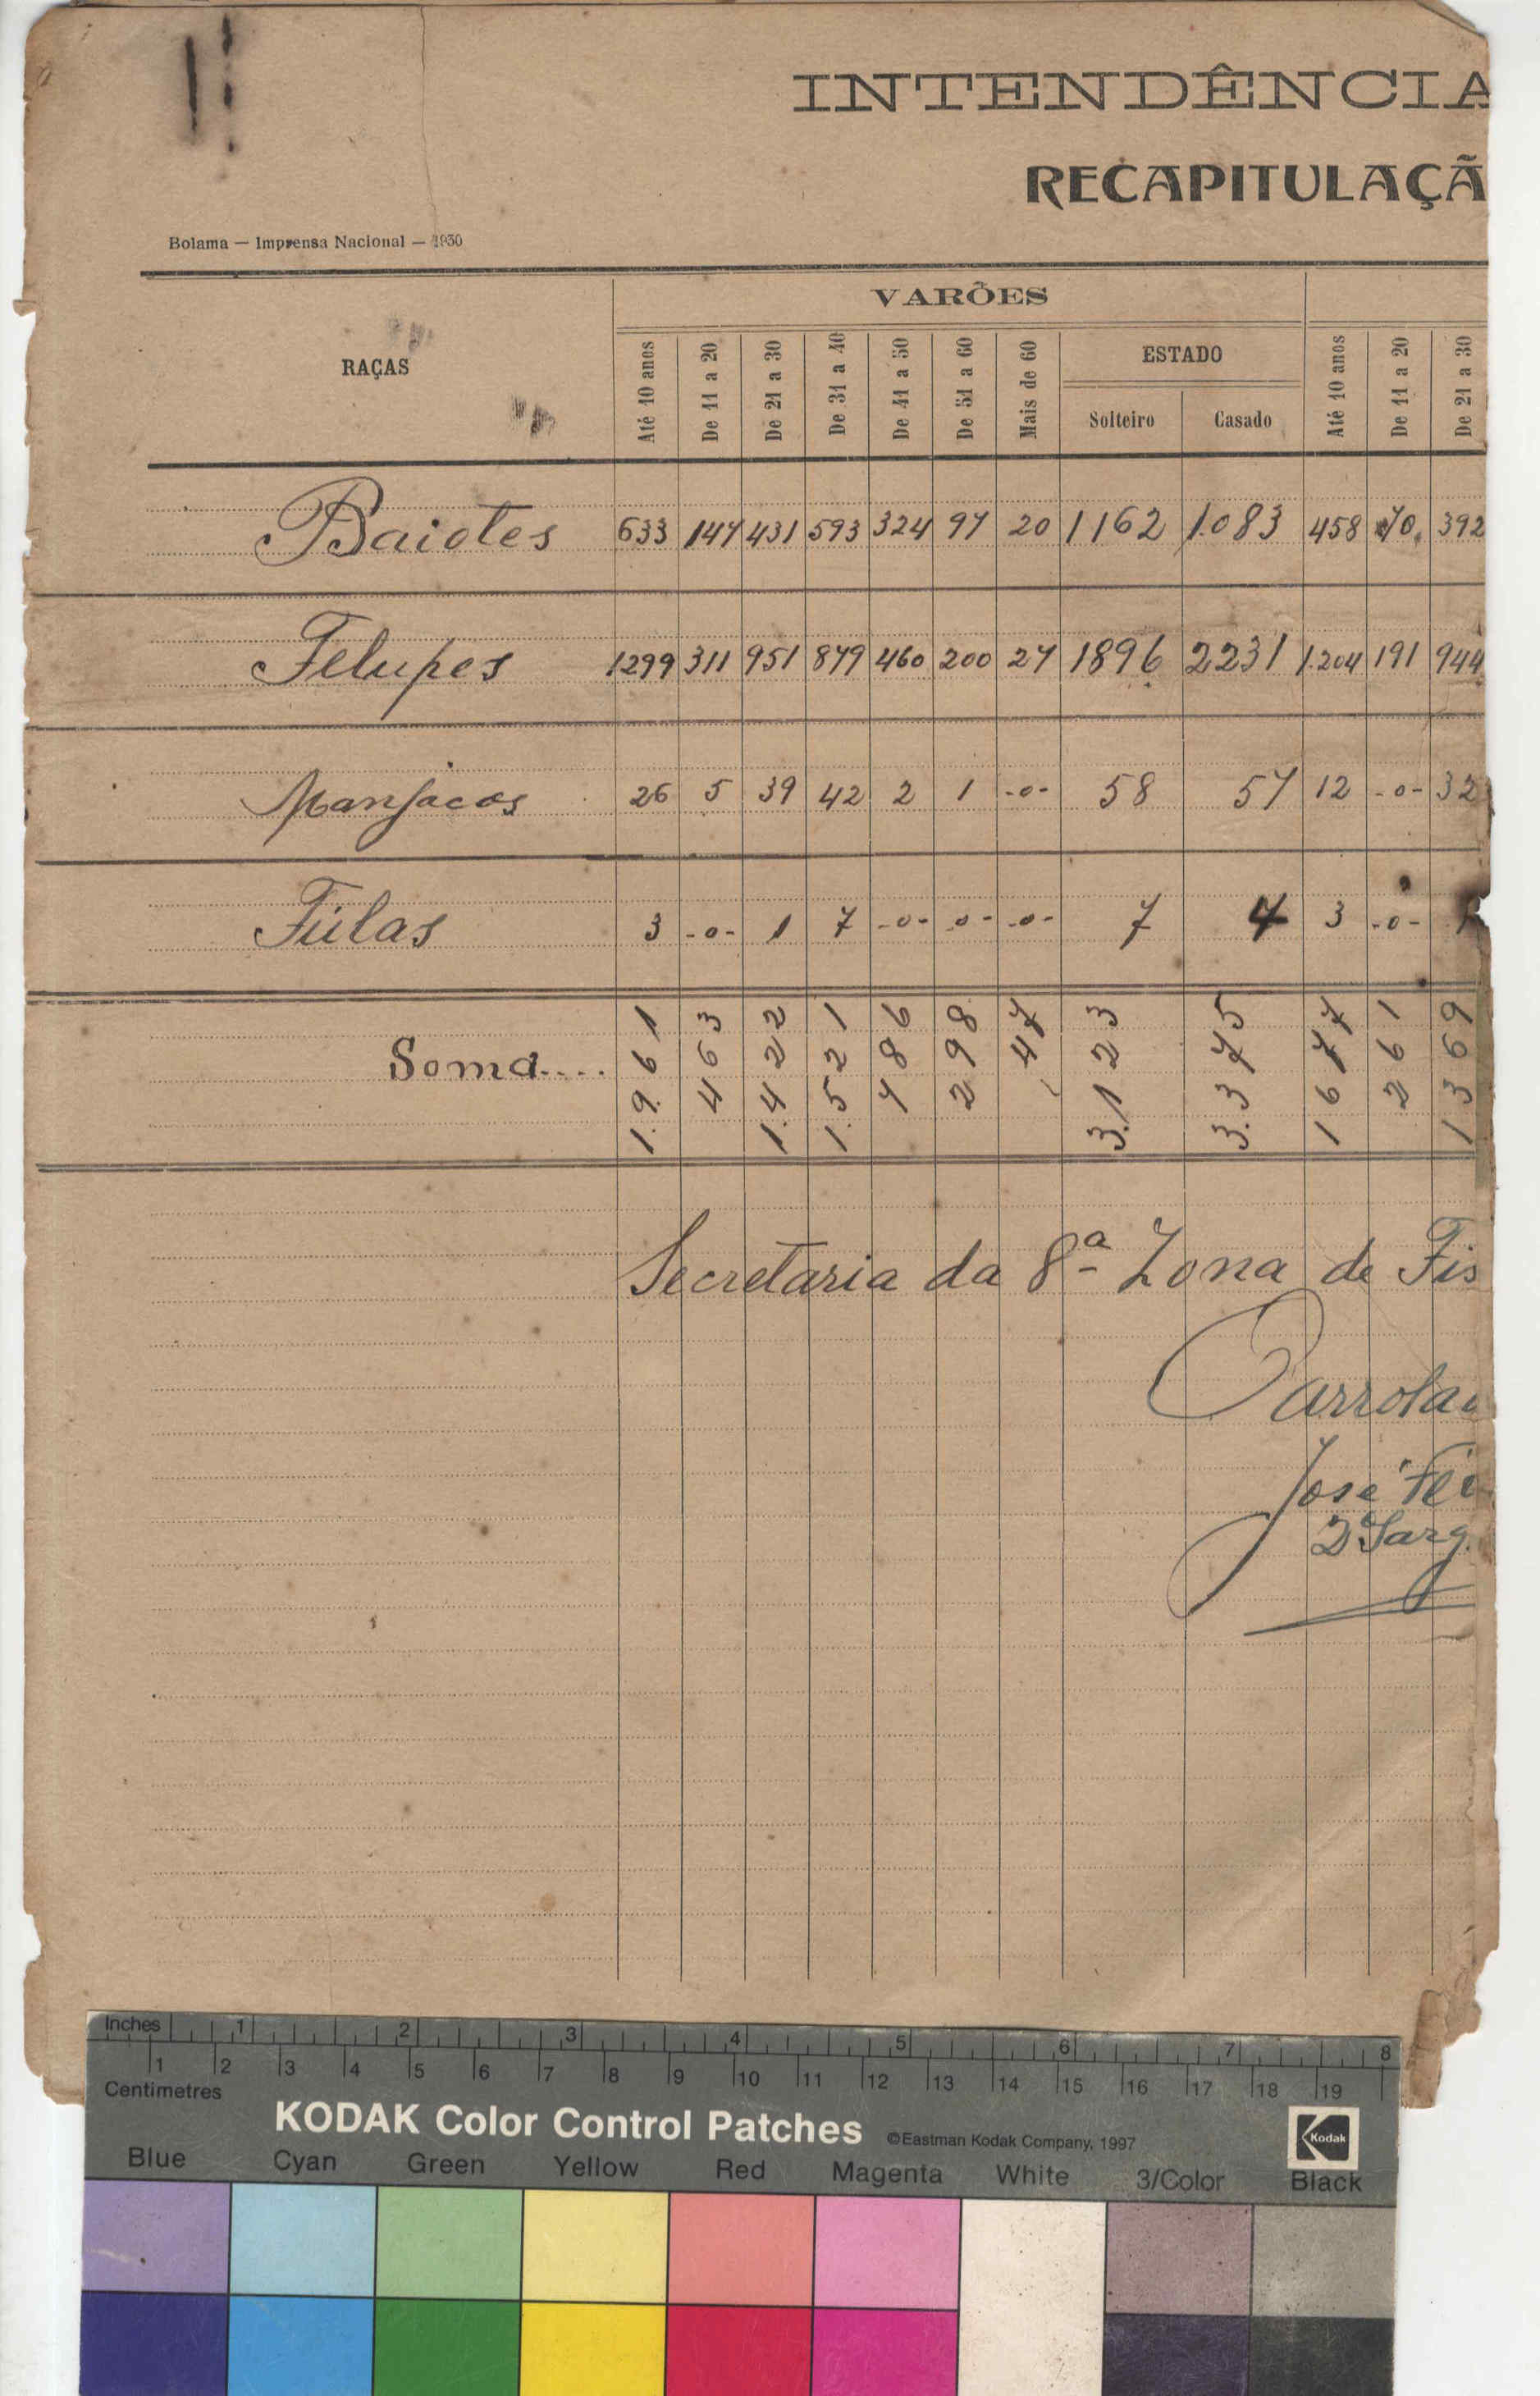 INTENDÊNCIA
RECAPITULAÇÃ
Bolama — Imprensa Nacional — 1930
VARÕES
RAÇAS Até 10 anos De 11 a 20 De 21 a 30 De 31 a 40 De 41 a 50 De 51 a 60 Mais de 60 ESTADO Até 10 anos De 11 a 20 De 21 a 30
Solteiro Casado
Baiotes 633 147 431 593 324 97 20 1162 1.083 458 70 392
Felupes 1299 311 951 879 460 200 27 1896 2231 1.204 191 944
Manjacos 26 5 39 42 2 1 -o- 58 57 12 -o- 32
Fúlas 3 -o- 1 7 -o- -o- -o- 7 4 3 -o- 1
Soma.... 1.961 463 1.422 1.521 786 298 47 3.123 3.375 1677 261 1369
Secretaria da 8ª Zona de Fis
O arrola
José Fé
2º Sarg.
Inches 1 2 3 4 5 6 7 8
1 2 3 4 5 6 7 8 9 10 11 12 13 14 15 16 17 18 19
Centimetres
KODAK Color Control Patches ©Eastman Kodak Company, 1997 Kodak
Blue Cyan Green Yellow Red Magenta White 3/Color Black